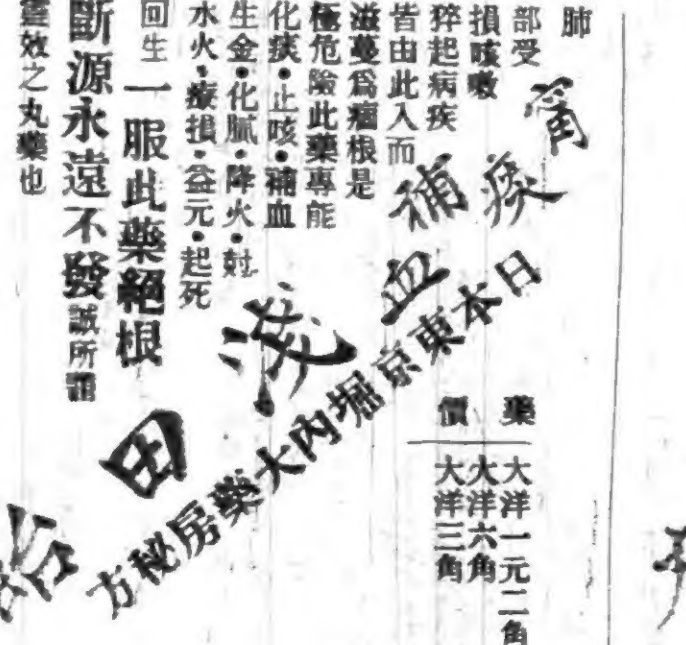 肺
部受
損咳嗽
猝起病疾
皆由此入而
滋蔓爲癆根是
極危險此藥專能
化痰・止咳・補血
生金・化膩・降火・尅
水火・療損・益元・起死
回生一服此藥絕根
斷源永遠不發誠所謂
靈效之丸藥也
痰
補血
淺田飴
日本東京堀內大藥房秘方
藥價
大洋一元二角
大洋六角
大洋三角